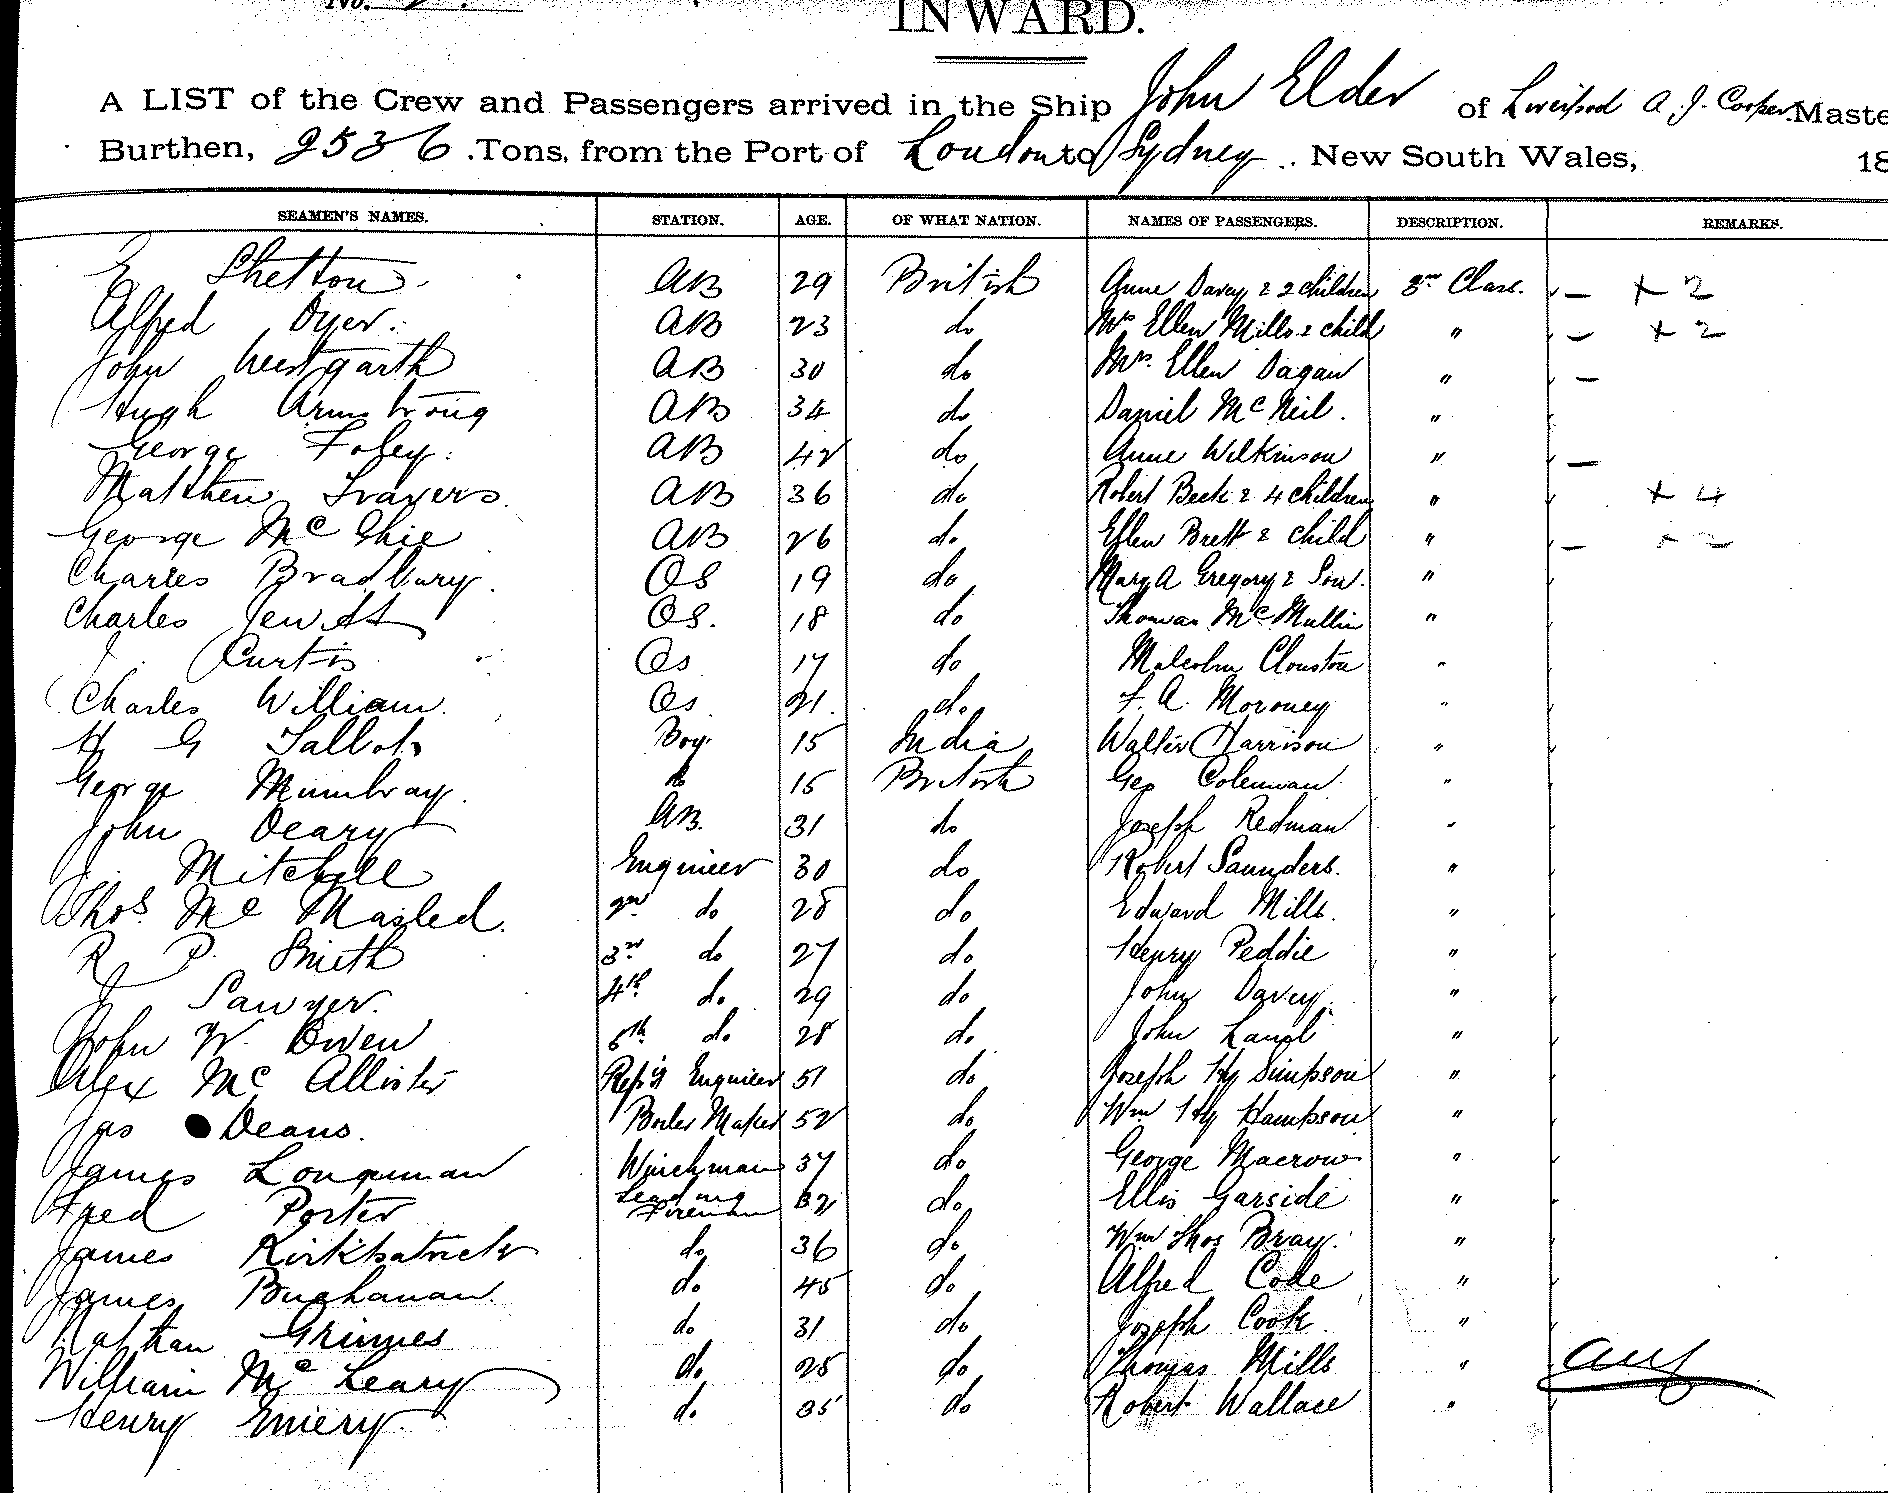 No.
INWARD.
A LIST of the Crew and Passengers arrived in the Ship John Elder of Liverpool A. J. Cooper Maste
Burthen, 2536 Tons, from the Port of London to Sydney New South Wales, 18
SEAMEN'S NAMES. STATION. AGE. OF WHAT NATION. NAMES OF PASSENGERS. DESCRIPTION. REMARKS.
E Shelton. AB 29 British Anne Davey & 2 children 3rd Class. — + 2
Alfred Dyer. AB 23 do Mrs Ellen Mills & child " — + 2
John Westgarth AB 30 do Mrs. Ellen Dagan " —
Hugh Armstrong AB 34 do Daniel McNeil. "
George Foley. AB 42 do Anne Wilkinson " —
Matthew Travers. AB 36 do Robert Beck & 4 children " + 4
George McGhie AB 26 do Ellen Brett & child " — + 2
Charles Bradbury. OS 19 do Mary A Gregory & Son. "
Charles Jewitt OS. 18 do Thomas McMullin "
J. Curtis Os 17 do Malcolm Clouston "
Charles William. Os 21. do F. A. Moroney "
H G Tallot Boy. 15 India Walter Harrison "
George Mumbray. 15 British Geo Coleman "
John Deary AB. 31 do Joseph Redman "
J. Mitchell Engineer 30 do Robert Saunders. "
Thos. Mc 2nd do 28 do Edward Mills. "
R. P. Smith 3rd do 27 do Henry Peddie "
J Sawyer. 4th do 29 do John Davey. "
John W. Owen 5th do 28 do John "
Alex McAllister Refrig Engineer 51 do Joseph Hy Simpson "
Jas Deans. Boiler Maker 52 do Wm Hy Hampson "
James Longman Winchman 37 do George Macrow "
Fred Porter Leading Fireman 32 do Ellis Garside "
James Kirkpatrick do 36 do Wm Thos Bray. "
James Buchanan. do 45 do Alfred Code "
Nathan Grimes do 31 do Joseph Cook "
William McLeary do 25 do Thomas Mills "
Henry Emery do 35 do Robert Wallace "